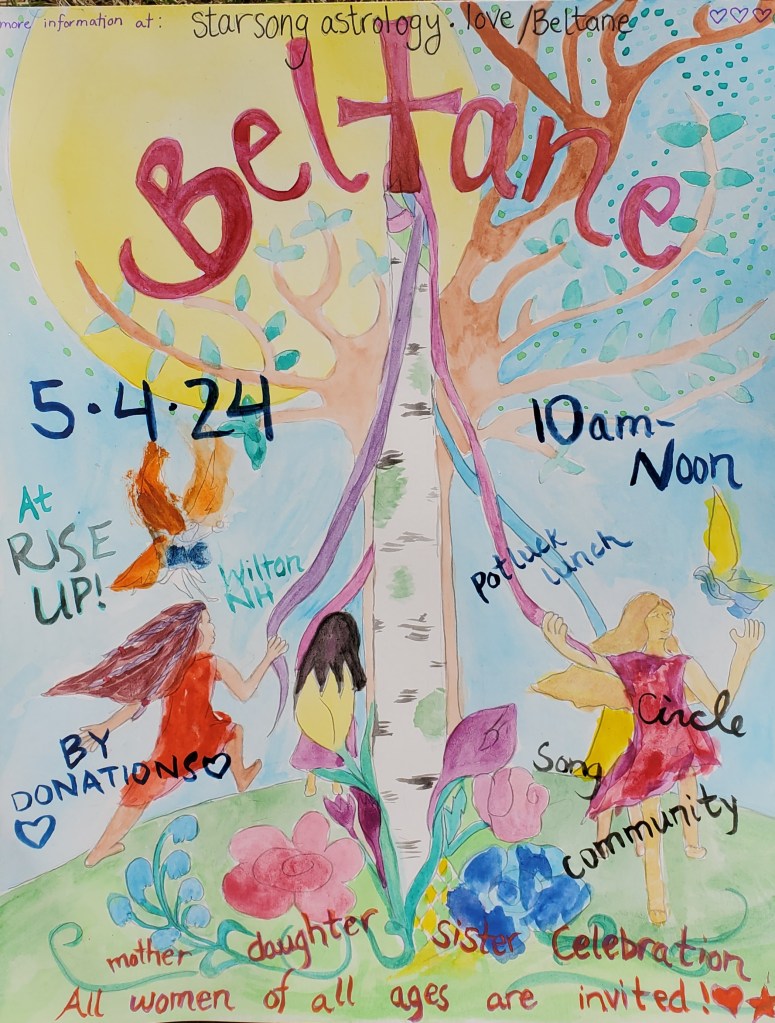 more information at: starsong astrology.love/Beltane
Beltane
5.4.24
10am-
Noon
At
RISE
UP!
Wilton
NH
Potluck
lunch
BY
DONATIONS
Circle
Song
Community
mother daughter sister Celebration
All women of all ages are invited!